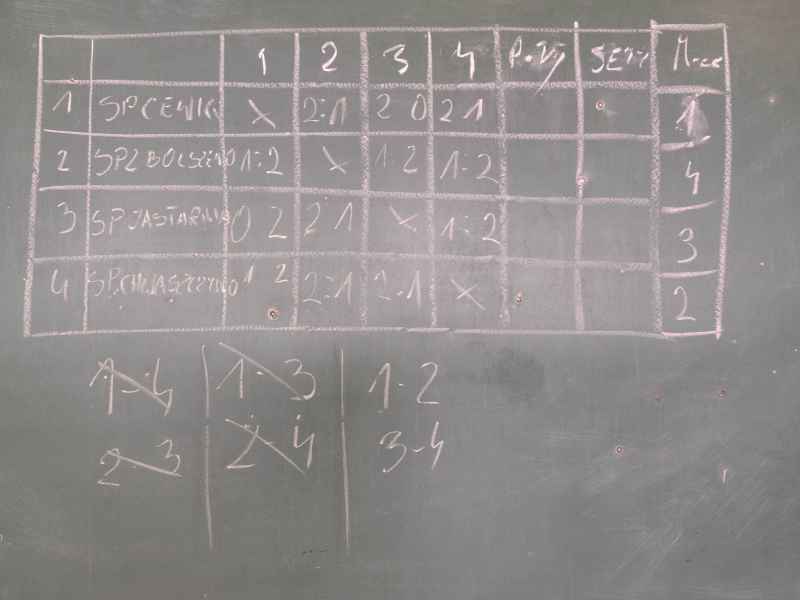 1 2 3 4 SETY
1 SP CEWICE X 2:1 2 0 2 1 1
2 SP2 BOLSZEWO 1:2 X 1:2 1:2 4
3 SP JASTARNIA 0 2 2 1 X 1:2 3
4 SP CHWASZCZYNO 1 2 2:1 2-1 X 2
1-4 1-3 1-2
2-3 2-4 3-4